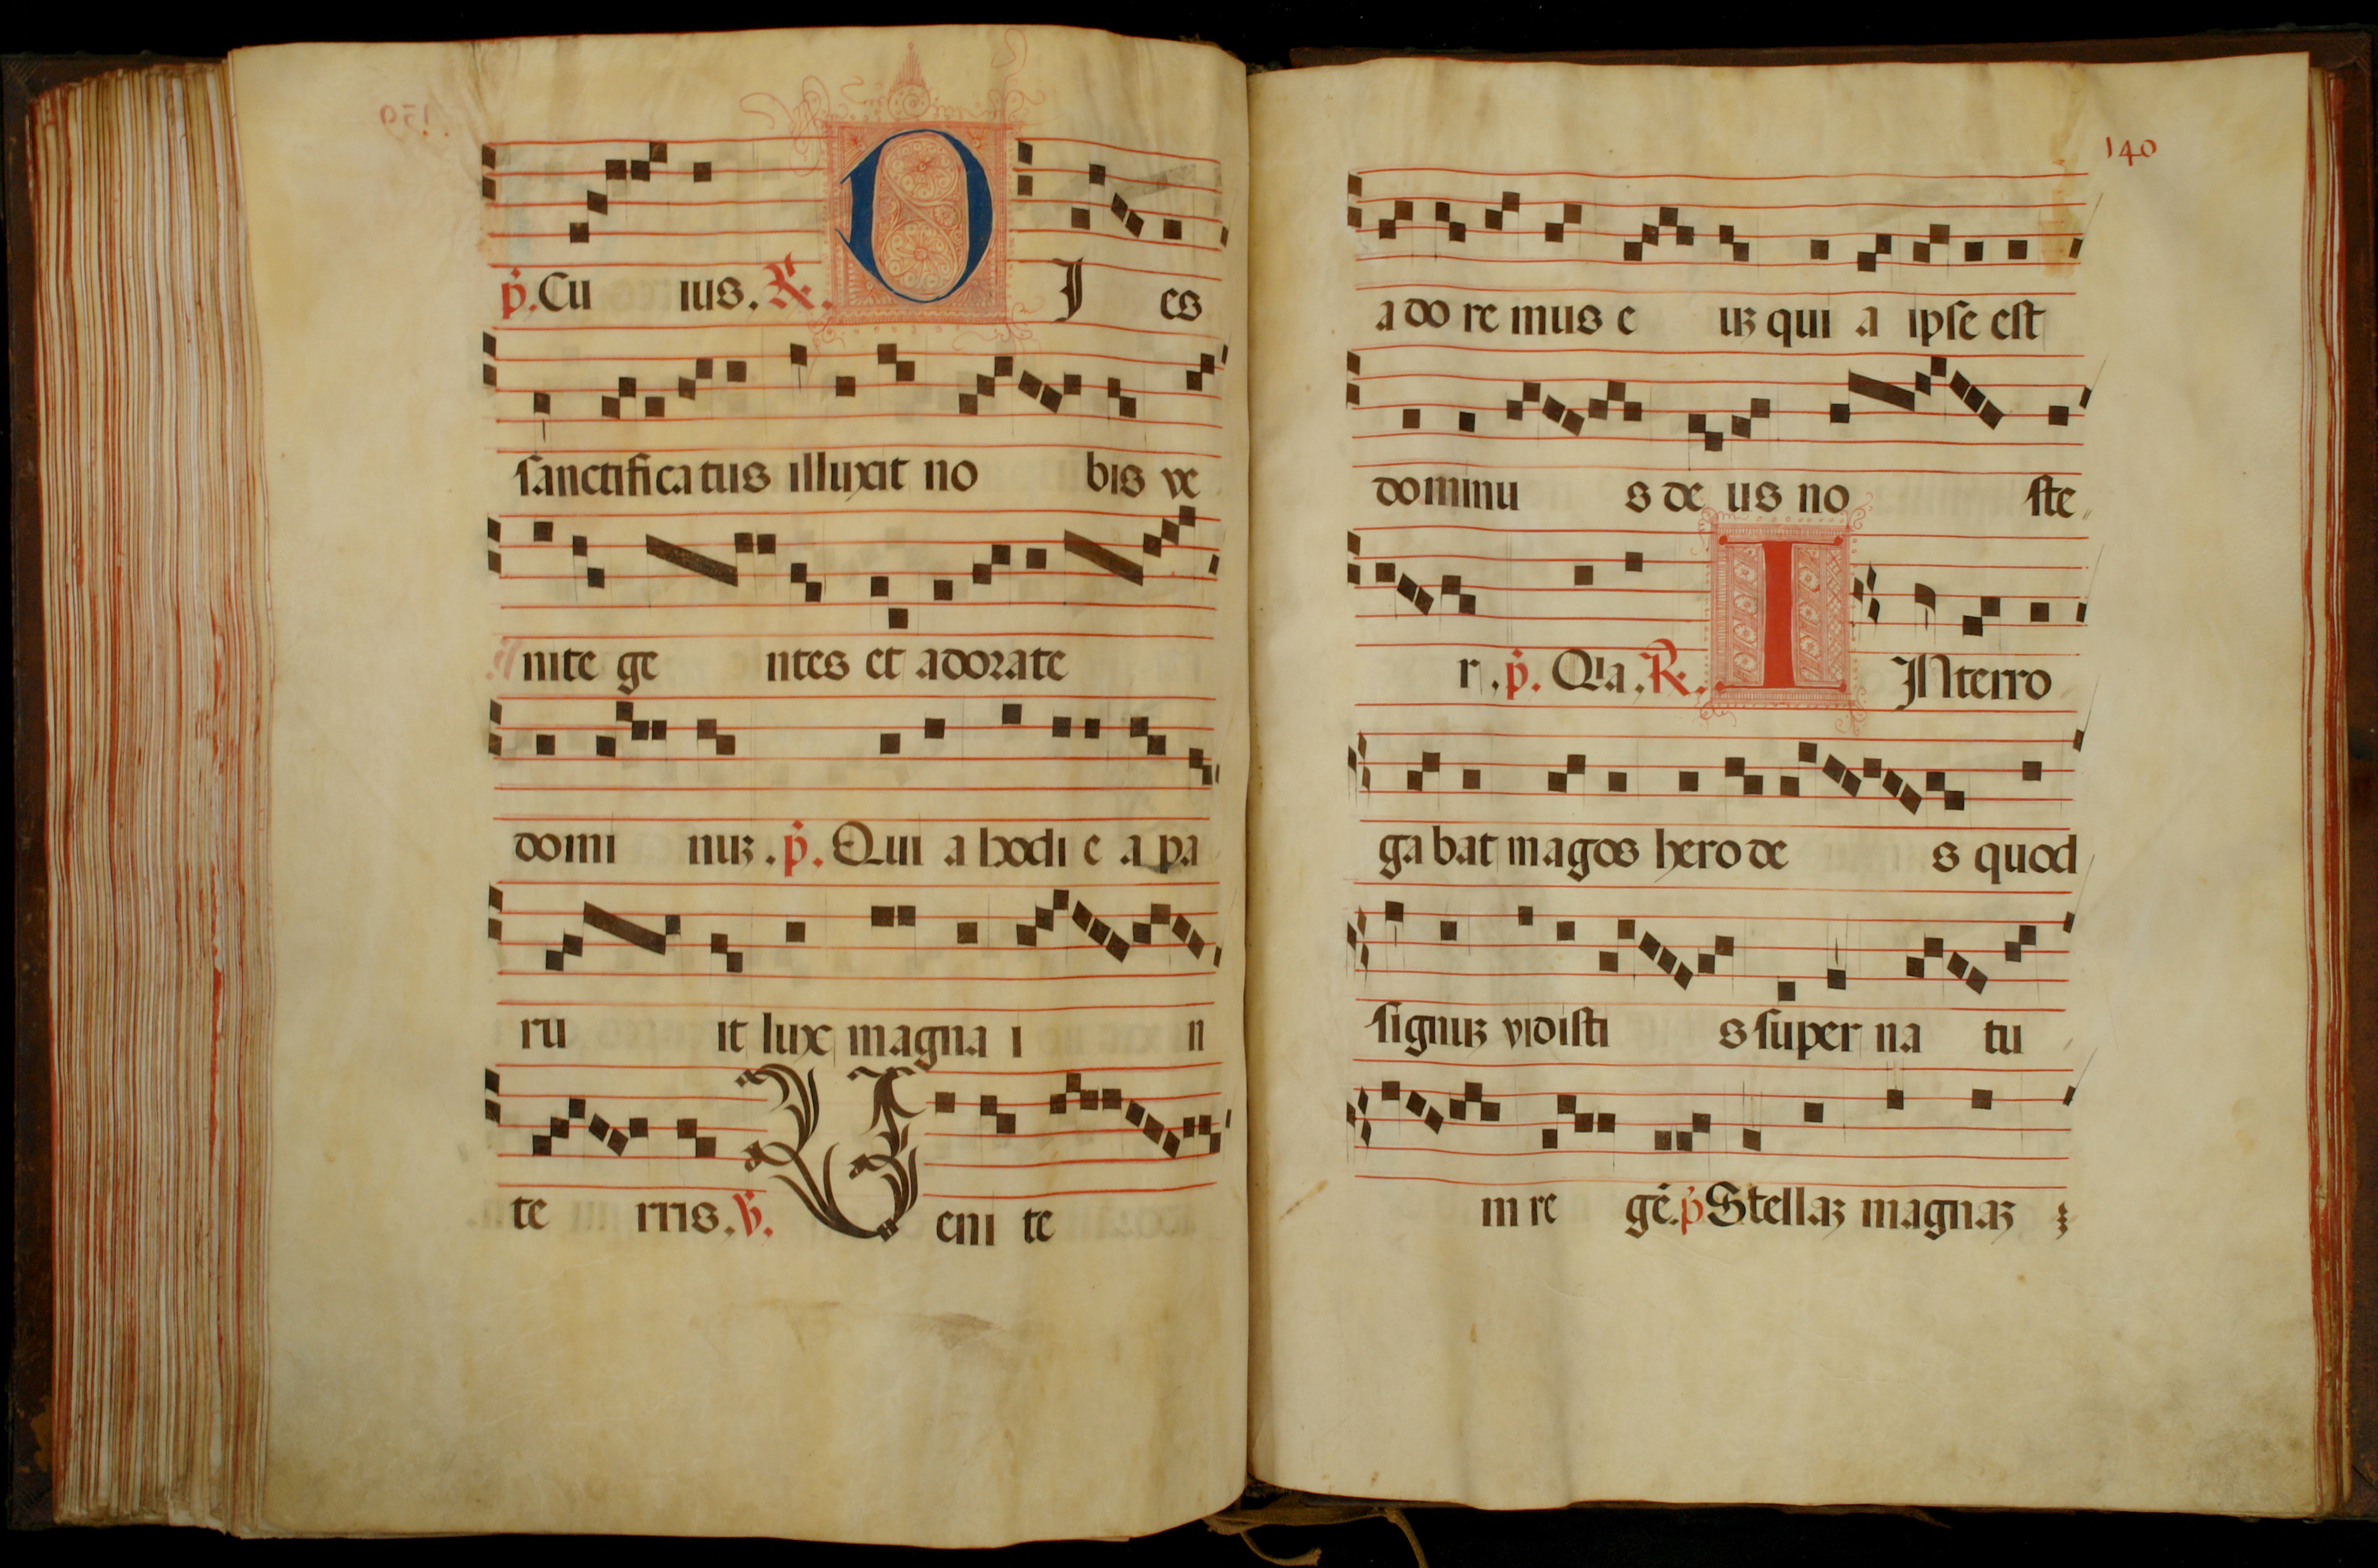 p. Cu ius. R. D J es
sanctificatus illuxit no bis ve
nite ge ntes et adorate
domi nuz. p. Qui a hodi e a pa
ru it lux magna i n
te rris. V. V eni te
140
a do re mus e uz qui a ipse est
dominu s de us no ste
r. p. Qia. R. I INterro
ga bat magos hero de s quod
signuz vidisti s super na tu
m re gē. p Stellaz magnaz